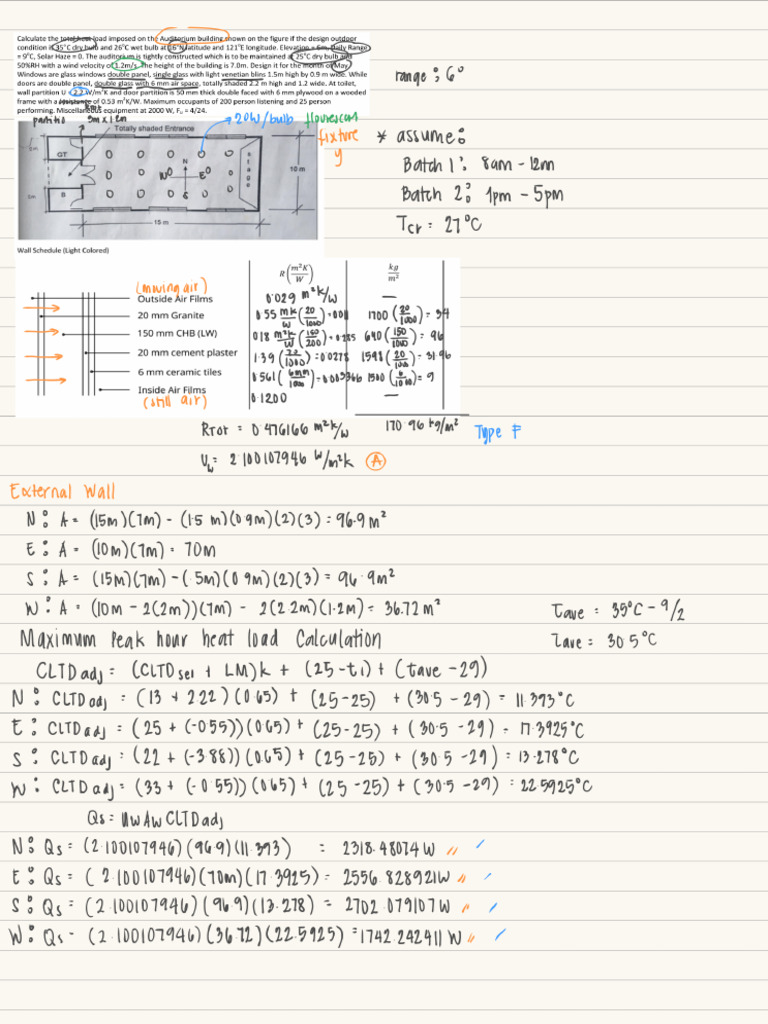 Calculate the total heat load imposed on the Auditorium building shown on the figure if the design outdoor
condition is 35°C dry bulb and 26°C wet bulb at 16°N latitude and 121°E longitude. Elevation = 6m, Daily Range
= 9°C, Solar Haze = 0. The auditorium is tightly constructed which is to be maintained at 25°C dry bulb and
50%RH with a wind velocity of 1.2m/s. The height of the building is 7.0m. Design it for the month of May.
Windows are glass windows double panel, single glass with light venetian blins 1.5m high by 0.9 m wide. While
doors are double panel, double glass with 6 mm air space, totally shaded 2.2 m high and 1.2 wide. At toilet,
wall partition U = 2.2 W/m°K and door partition is 50 mm thick double faced with 6 mm plywood on a wooded
frame with a of 0.53 m²K/W. Maximum occupants of 200 person listening and 25 person
performing. Miscellaneous equipment at 2000 W, Fᵤ = 4/24.
range: 6°
20W/bulb fluorescent
fixture
y
Totally shaded Entrance
GT
B
N
W
E
S
stage
10 m
15 m
* assume:
Batch 1: 8am - 12nn
Batch 2: 1pm - 5pm
Tcr = 27°C
Wall Schedule (Light Colored)
R (m²K/W)
kg/m²
(moving air)
Outside Air Films
0.029 m²k/w
—
20 mm Granite
0.55 mk/w (20/1000) = 0.011
1700 (20/1000) = 34
150 mm CHB (LW)
640 (150/1000) = 96
20 mm cement plaster
1.39 (20/1000) = 0.0278
1598 (20/1000) = 31.96
6 mm ceramic tiles
0.561 (6mm/1000) = 0.003366
1500 (6/1000) = 9
Inside Air Films
0.1200
—
(still air)
RTOT = 0.476166 m²k/w
170.96 kg/m²
Type F
Uw = 2.100107946 W/m²k (A)
External Wall
N: A = (15m)(7m) - (1.5 m)(0.9m)(2)(3) = 96.9 m²
E: A = (10m)(7m) = 70m
S: A = (15m)(7m) - (.5m)(0.9m)(2)(3) = 96.9m²
W: A = (10m - 2(2m))(7m) - 2(2.2m)(1.2m) = 36.72 m²
Tave = 35°C - 9/2
Tave = 30.5°C
Maximum Peak hour heat load Calculation
CLTDadj = (CLTDsel + LM)k + (25-ti) + (tave - 29)
N: CLTDadj = (13 + 2.22)(0.65) + (25-25) + (30.5 - 29) = 11.393°C
E: CLTDadj = (25 + (-0.55))(0.65) + (25-25) + (30.5 - 29) = 17.3925°C
S: CLTDadj = (22 + (-3.88))(0.65) + (25-25) + (30.5 - 29) = 13.278°C
W: CLTDadj = (33 + (-0.55))(0.65) + (25-25) + (30.5 - 29) = 22.5925°C
Qs = UwAwCLTDadj
N: Qs = (2.100107946)(96.9)(11.393) = 2318.48074 W //
E: Qs = (2.100107946)(70m)(17.3925) = 2556.828921W //
S: Qs = (2.100107946)(96.9)(13.278) = 2702.079107W //
W: Qs = (2.100107946)(36.72)(22.5925) = 1742.242411 W //